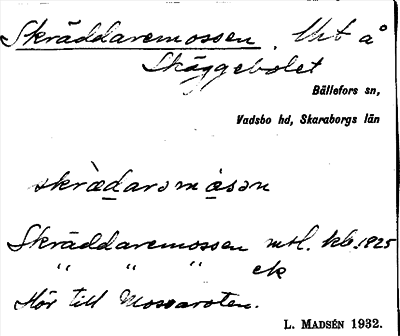 Skräddaremossen. Urt å
Skäggebolet
Bällefors sn,
Vadsbo hd, Skaraborgs län
skrædarəmåsən
Skräddaremossen mtl. kb. 1825
" " " ek
Hör till Mossaroten.
L. MADSÉN 1932.